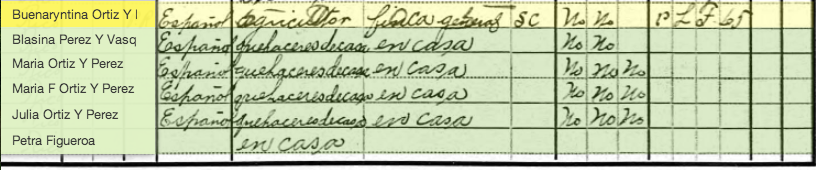 Buenaryntina Ortiz Y I Español agricultor finca general SC No No P L F 65
Blasina Perez Y Vasq Español quehaceres de casa en casa No No
Maria Ortiz Y Perez Español quehaceres de casa en casa No No No
Maria F Ortiz Y Perez Español quehaceres de casa en casa No No No
Julia Ortiz Y Perez Español quehaceres de casa en casa No No No
Petra Figueroa en casa